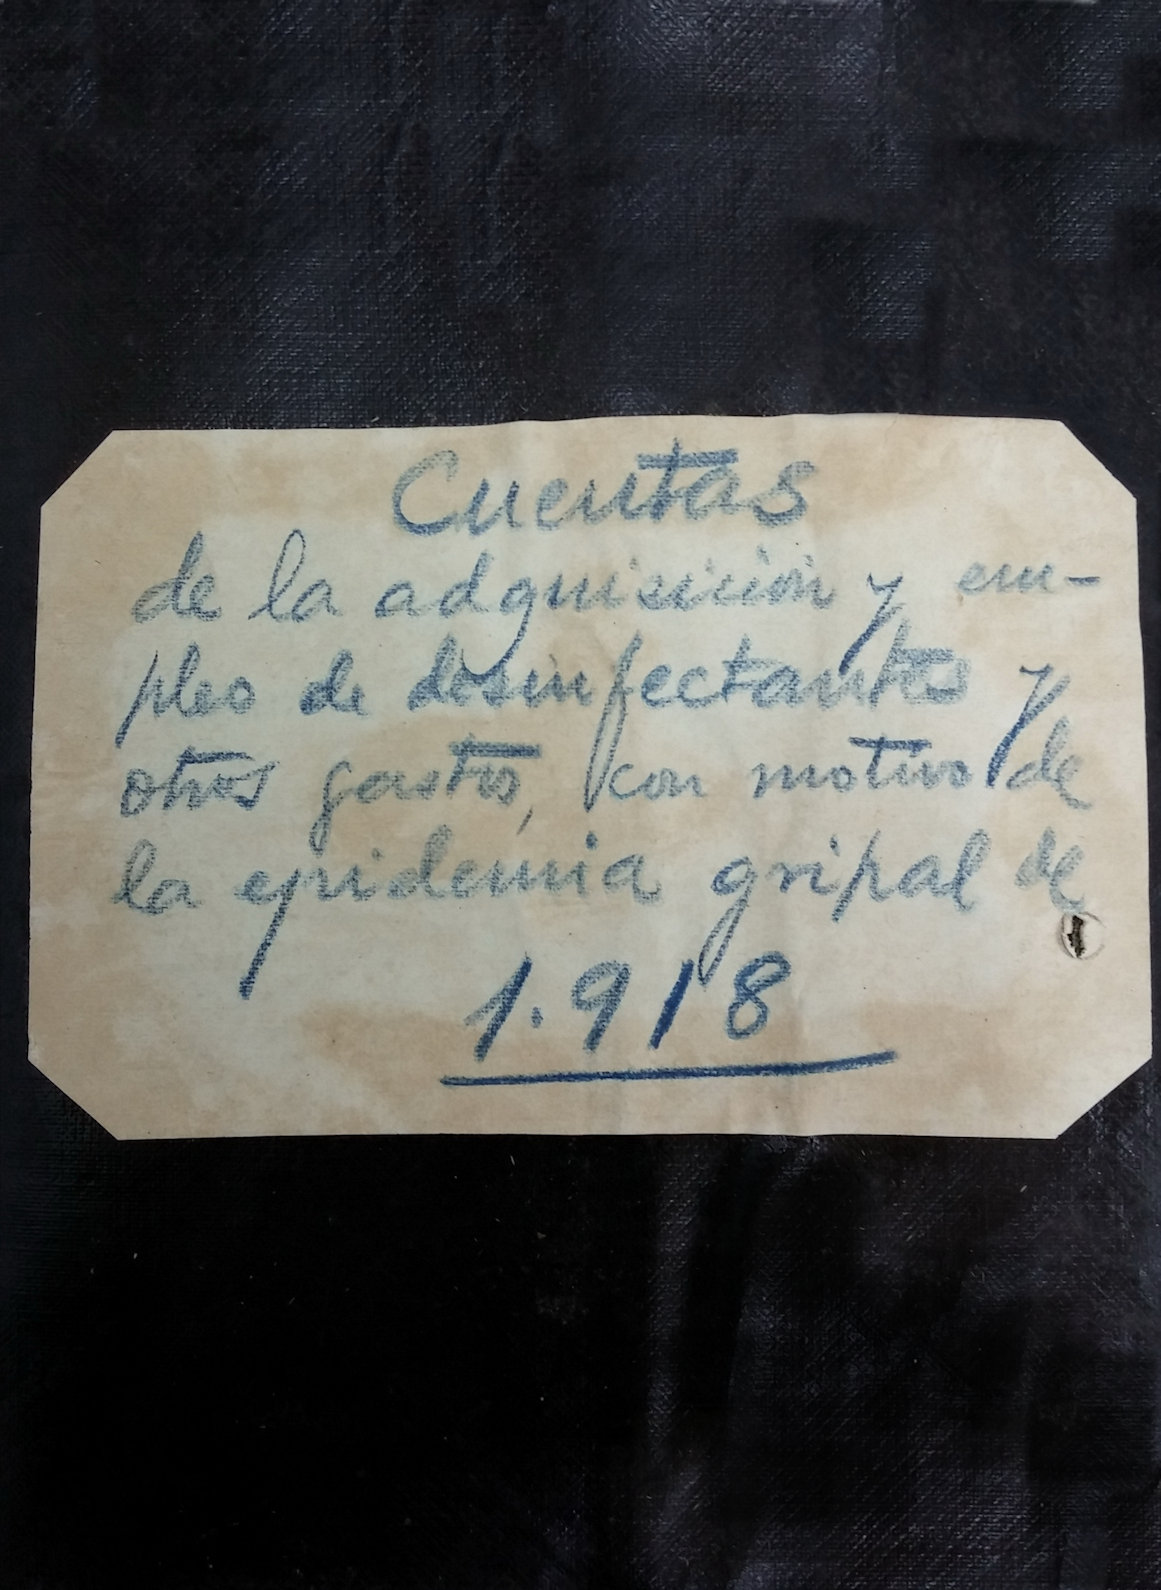 Cuentas
de la adquisicion y em-
pleo de desinfectantes y
otros gastos, con motivo de
la epidemia gripal de
1.918